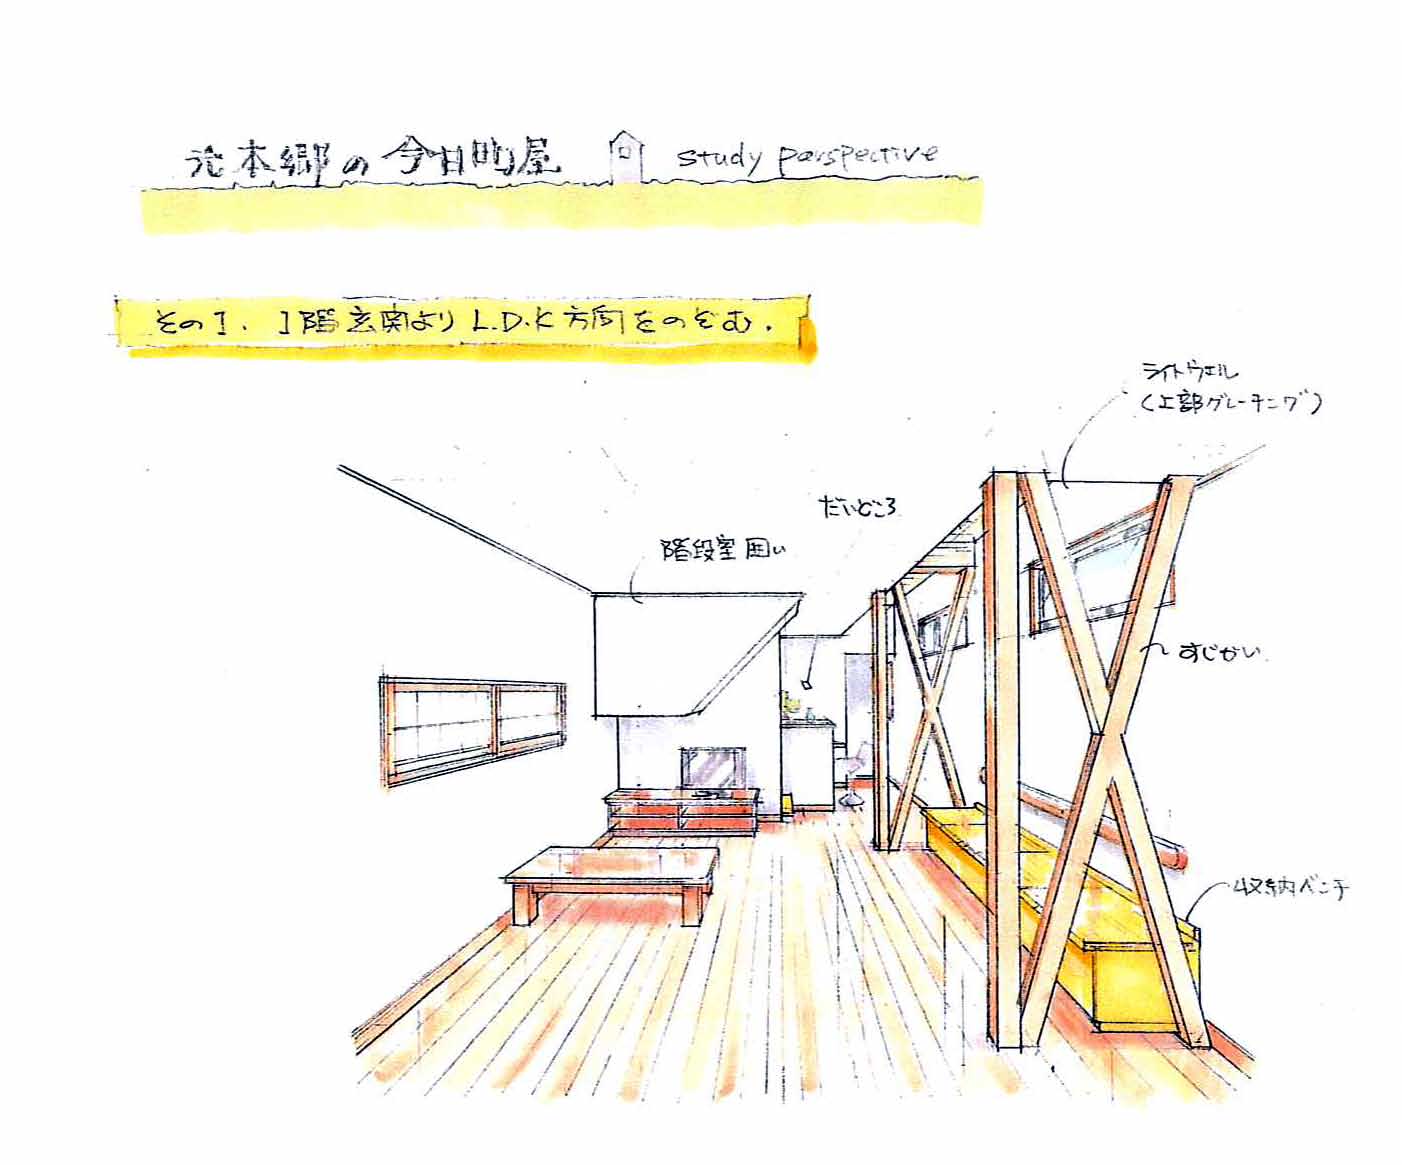 元本郷の今日町屋 study parspective
その1. 1階玄関よりL.D.K方向をのぞむ.
ライトウェル
(上部グレーチング)
だいどころ
階段室囲い
すじかい
収納ベンチ